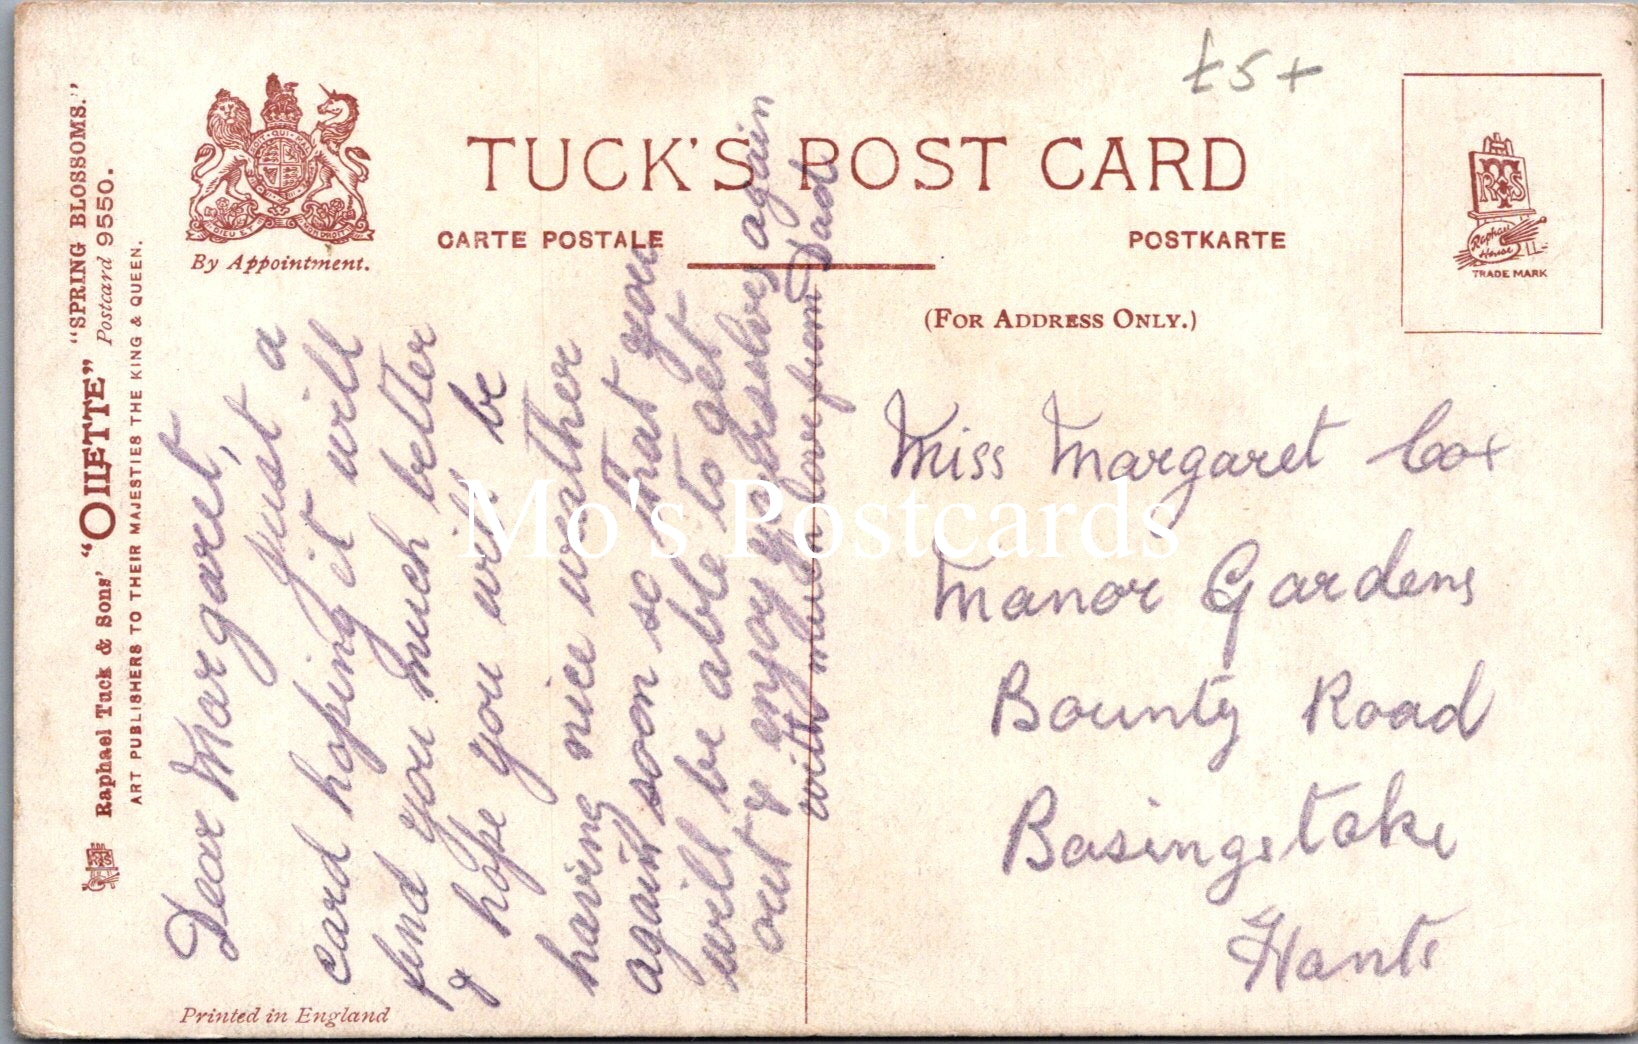 £5+
TUCK'S POST CARD
CARTE POSTALE
POSTKARTE
(FOR ADDRESS ONLY.)
By Appointment.
DIEU ET MON DROIT
Raphael Tuck & Sons' "OILETTE" "SPRING BLOSSOMS."
Postcard 9550.
ART PUBLISHERS TO THEIR MAJESTIES THE KING & QUEEN.
RTS
Raphael
House
TRADE MARK
Dear Margaret,
Just a
card hoping it will
find you much better
& hope you will be
having nice weather
again soon so that you
will be able to get
out & enjoy yourselves again
with much love from Dad
Miss Margaret Cox
Manor Gardens
Bounty Road
Basingstoke
Hants
Printed in England
Mo's Postcards